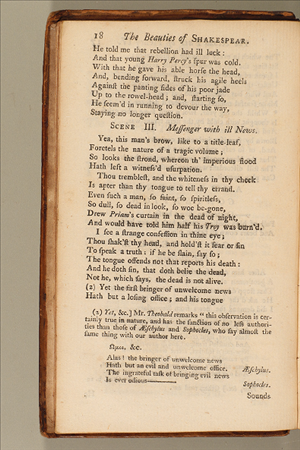 18 The Beauties of SHAKESPEAR.
He told me that rebellion had ill luck:
And that young Harry Percy's spur was cold.
With that he gave his able horse the head,
And, bending forward, struck his agile heels
Against the panting sides of his poor jade
Up to the rowel-head; and, starting so,
He seem'd in running to devour the way,
Staying no longer question.
SCENE III. Messenger with ill News.
Yea, this man's brow, like to a title-leaf,
Foretels the nature of a tragic volume;
So looks the strond, whereon th' imperious flood
Hath left a witness'd usurpation.
Thou tremblest, and the whiteness in thy cheek
Is apter than thy tongue to tell thy errand.
Even such a man, so faint, so spiritless,
So dull, so dead in look, so woe be-gone,
Drew Priam's curtain in the dead of night,
And would have told him half his Troy was burn'd.
I see a strange confession in thine eye;
Thou shak'st thy head, and hold'st it fear or sin
To speak a truth: if he be slain, say so;
The tongue offends not that reports his death:
And he doth sin, that doth belie the dead,
Not he, which says, the dead is not alive.
(2) Yet the first bringer of unwelcome news
Hath but a losing office; and his tongue
(2) Yet, &c.] Mr. Theobald remarks "this observation is cer-
tainly true in nature, and has the sanction of no less authori-
ties than those of Æschylus and Sophocles, who say almost the
same thing with our author here.
&c.
Alas! the bringer of unwelcome news
Hath but an evil and unwelcome office. Æschylus.
The ingrateful task of bringing evil news
Is ever odious———— Sophocles.
Sounds